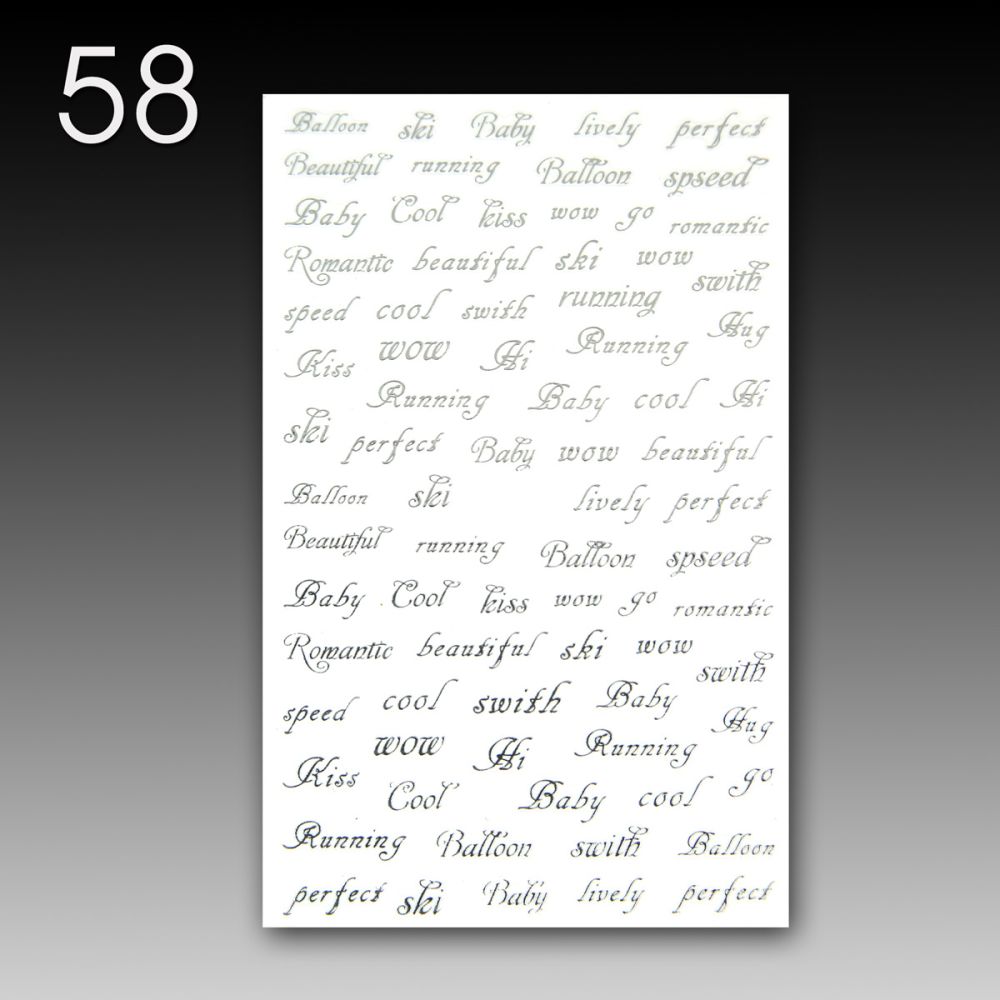 58
Balloon ski Baby lively perfect
Beautiful running Balloon spseed
Baby Cool kiss wow go romantic
Romantic beautiful ski wow swith
speed cool swith running Hug
Kiss wow Hi Running
Running Baby cool Hi
ski perfect Baby wow beautiful
Balloon ski lively perfect
Beautiful running Balloon spseed
Baby Cool kiss wow go romantic
Romantic beautiful ski wow swith
speed cool swith Baby Hug
Kiss wow Hi Running
Cool Baby cool go
Running Balloon swith Balloon
perfect ski Baby lively perfect